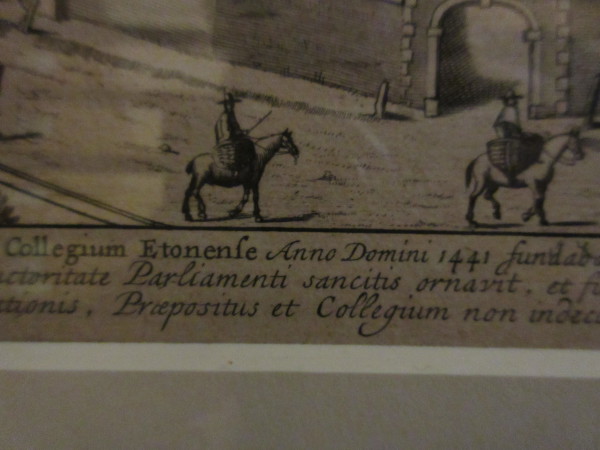 Collegium Etonenſe Anno Domini 1441 fundab
ctoritate Parliamenti sancitis ornavit. et
tionis, Præpositus et Collegium non indec